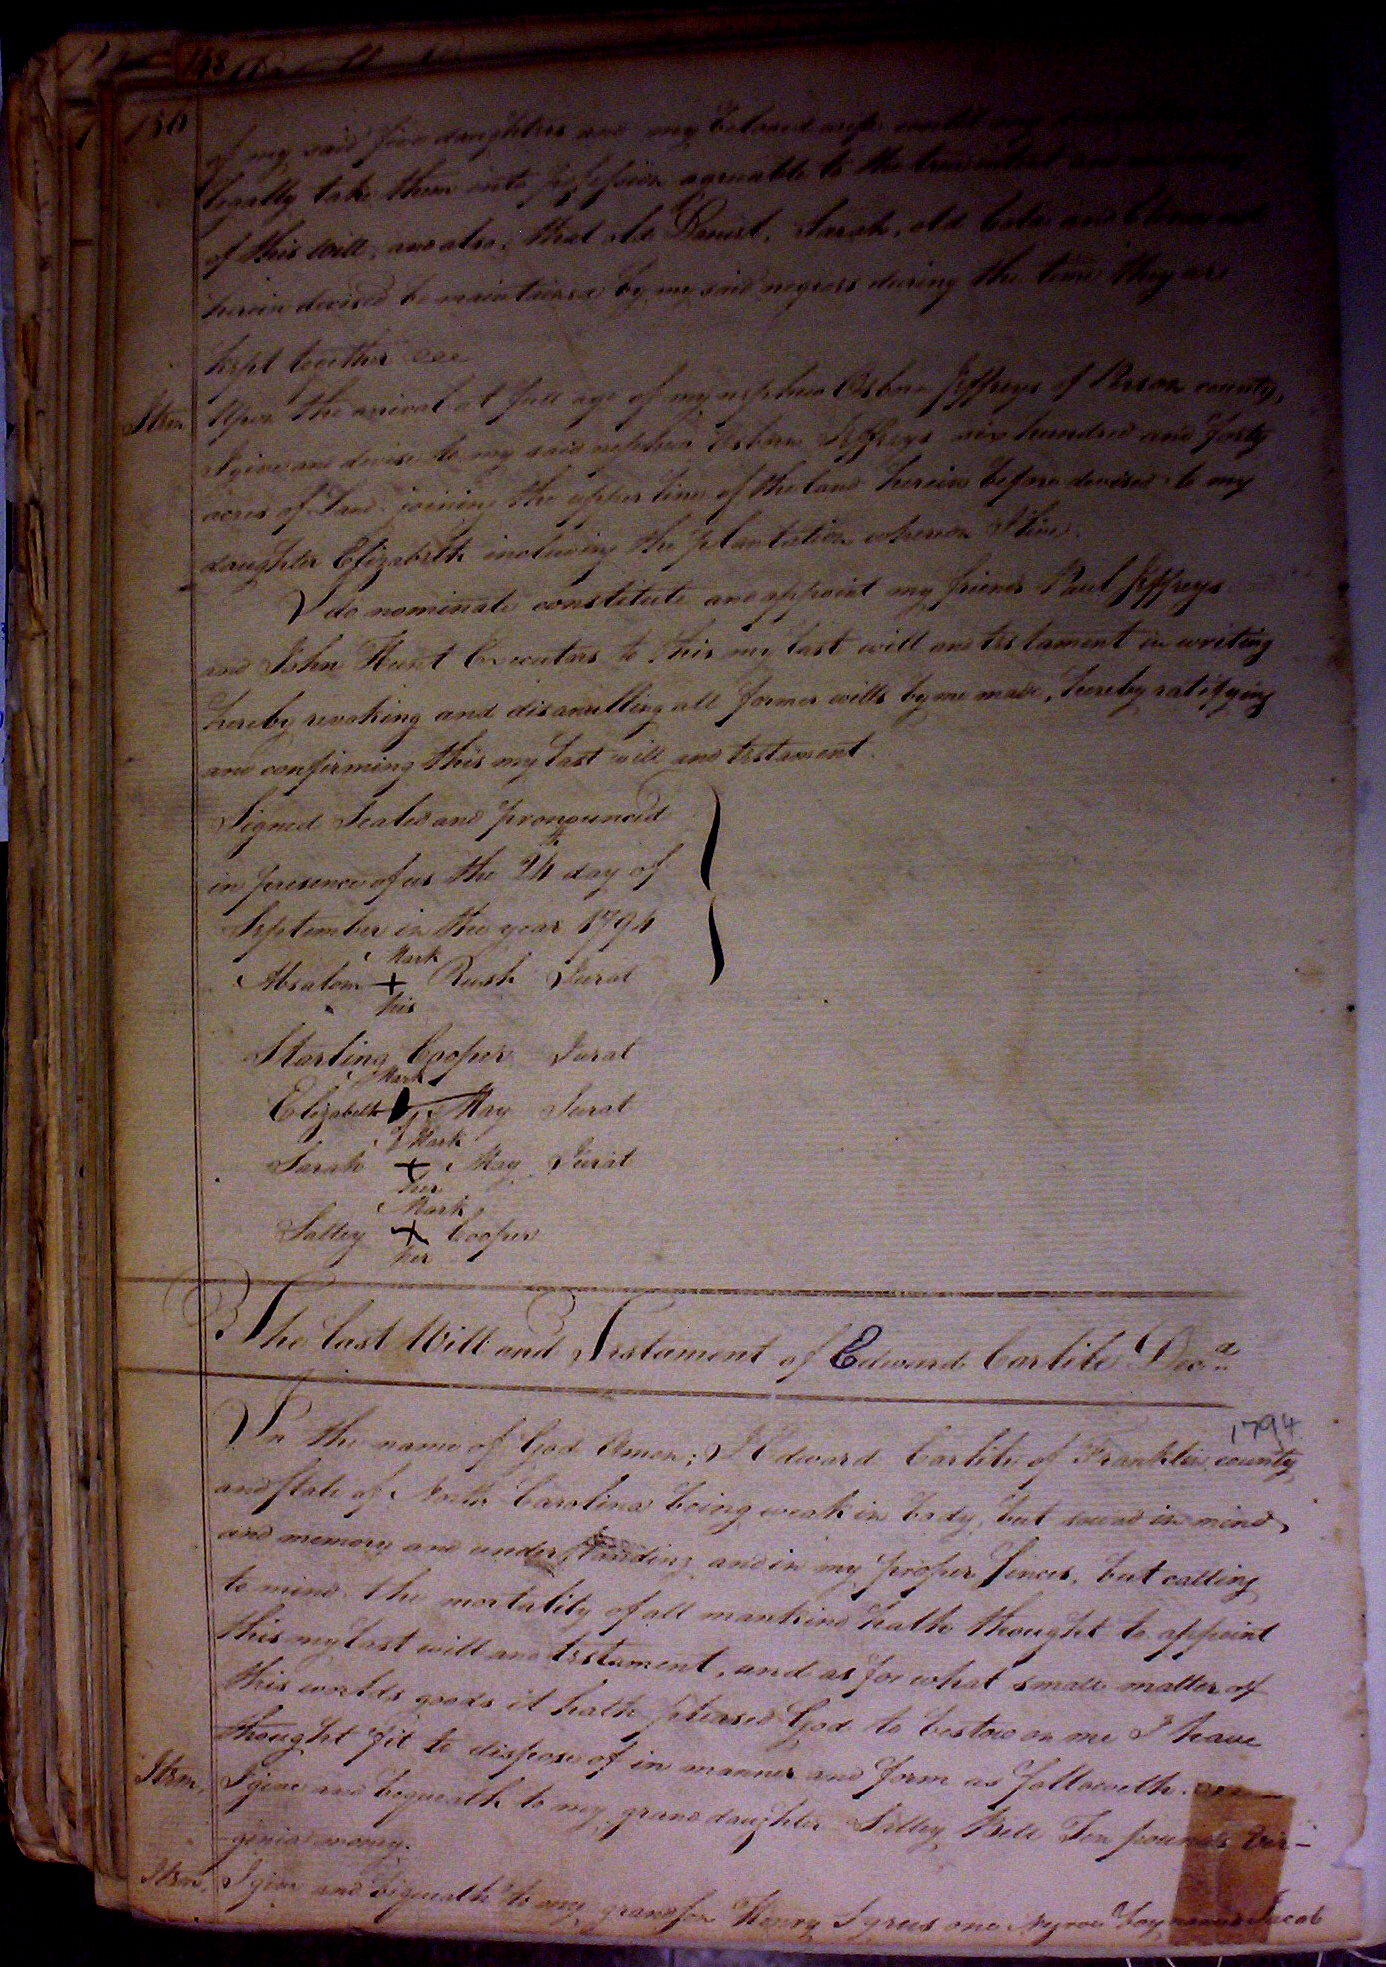 148
156
of my said five daughters and my beloved wife until my
legally take them into possession agreeable to the true intent and meaning
of this will, and also, that old Daniel, Sarah, old Cate and
herein devised be maintained by my said negroes during the time they are
kept together
Item Upon the arival at full age of my nephew Osborn Jeffreys of Person county,
I give and devise to my said nephew Osborn Jeffreys six hundred and forty
acres of Land joining the upper line of the land herein before devised to my
daughter Elizabeth including the plantation whereon I live.
I do nominate constitute and appoint my friends Paul Jeffreys
and John Hunt Executors to this my last will and testament in writing
hereby revoking and disanulling all former wills by me made, hereby ratifying
and confirming this my last will and testament.
Signed Sealed and pronounced
in presence of us the 24th day of
September in the year 1794
Mark
Absalom + Rush Jurat
his
Starling Cooper Jurat
Mark
Elizabeth May Jurat
Mark
Sarah + May Jurat
her
Mark
Salley + Cooper
her
The last Will and Testament of Edward Carlile Decd
1794
In the name of God Amen; I Edward Carlile of Franklin county
and state of North Carolina being weak in body, but sound in mind,
and memory and understanding and in my proper sinces, but calling
to mind the mortality of all mankind hath thought to appoint
this my last will and testament, and as for what small matter of
this worlds goods it hath pleased God to bestow on me I have
thought fit to dispose of in manner and form as followeth.
Item, I give and bequeath to my grand daughter Salley Bell Ten pounds Vir-
-ginia money.
Item, I give and bequeath to my grandson Henry Syrus one Negroe boy named Jacob